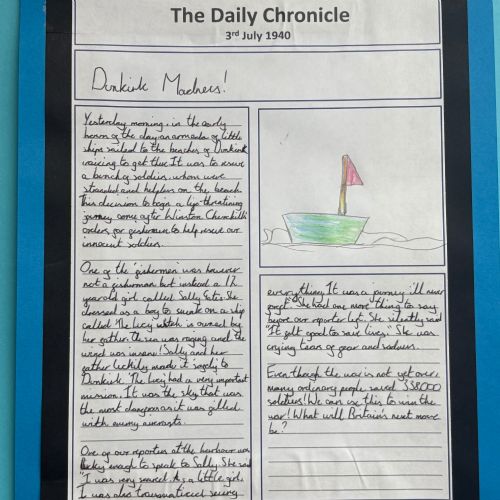 The Daily Chronicle
3rd July 1940
Dunkirk Madness!
Yesterday morning, in the early
hours of the day, an armada of little
ships sailed to the beaches of Dunkirk
waiting to get thier. It was to rescue
a bunch of soldiers, whom were
stranded and helpless on the beach.
This decision to begin a life-threatining
journey came after Winston Churchill's
orders, for fisherman to help rescue our
innocent soldiers.
One of the 'fisherman' was however
not a fisherman but instead a 12
year old girl called Sally. She
dressed as a boy to sneak on a ship
called 'The Lucy' which is owned by
her father. The sea was raging and the
wind was insane! Sally and her
father luckily made it safely to
Dunkirk. 'The Lucy' had a very important
mission. It was the sky that was
the most dangerous it was filled
with enemy aircrafts.
One of our reporters at the harbour was
lucky enough to speak to Sally. She said
"I was very scared. As a little girl,
I was also traumatised seeing
everything. It was a journey i'll never
forget". She had one more thing to say
before our reporter left. She silently said
"It felt good to save lives." She was
crying tears of fear and sadness.
Even though the war is not yet over,
many ordinary people saved 338000
soldiers! We can use this to win the
war! What will Britain's next move
be?